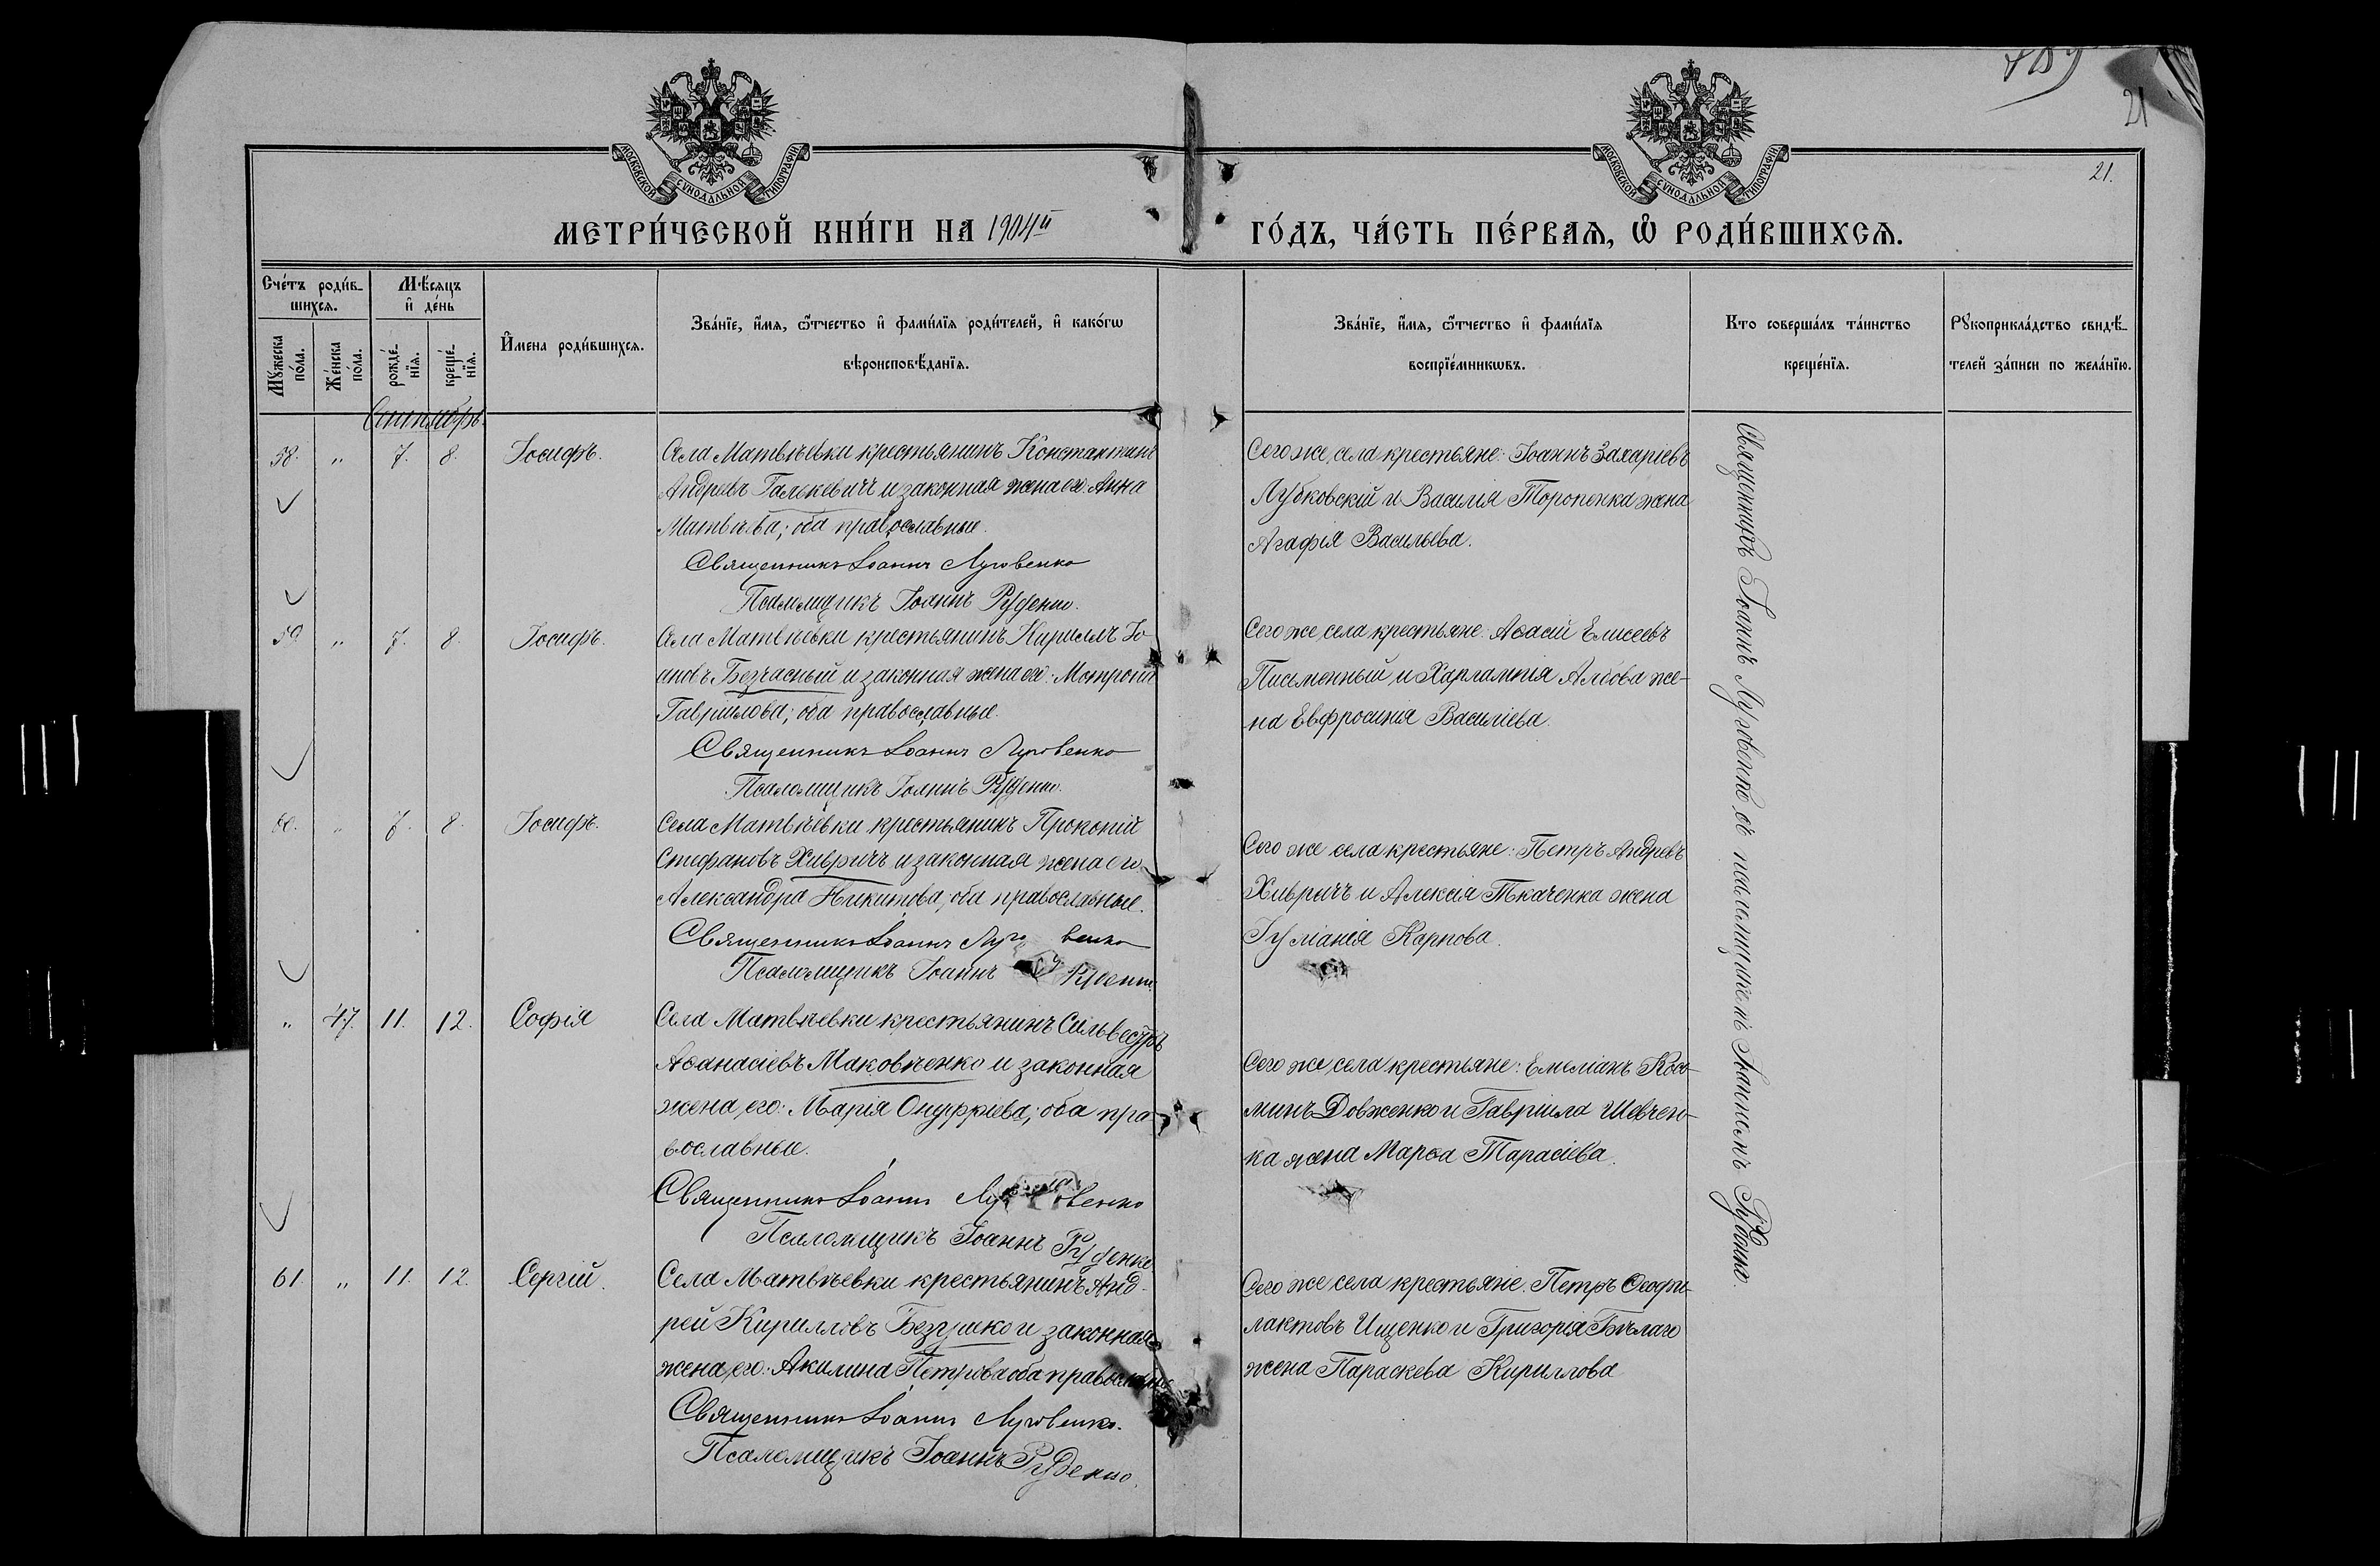 189
21
21.
МОСКОВСКОЙ СУНОДАЛЬНОЙ ТИПОГРАФІИ
МОСКОВСКОЙ СУНОДАЛЬНОЙ ТИПОГРАФІИ
МЕТРИ́ЧЕСКОЙ КНИ́ГИ НА 1904й ГО́ДЪ, ЧА́СТЬ ПЕ́РВАЯ, Ѽ РОДИ́ВШИХСЯ.
Сче́тъ роди́в-
шихся.
Мѣ́сяцъ
и҆ де́нь
Мꙋ́жеска
по́ла.
Же́нска
по́ла.
рожде́-
нїя.
креще́-
нїя.
И҆́мена роди́вшихся.
Зва́нїе, и҆́мя, ѻ҆́тчество и҆ фами́лїя роди́телей, и҆ како́гѡ
вѣроисповѣ́данїя.
Зва́нїе, и҆́мя, ѻ҆́тчество и҆ фами́лїя
воспрїе́мникѡвъ.
Кто соверша́лъ та́инство
креще́нїя.
Рꙋкоприкла́дство свидѣ́-
телей за́писи по жела́нїю.
Сентябрь.
58. " 7. 8. Іосифъ.
Села Матвѣевки крестьянинъ Константинъ
Андреевъ Галькевичъ и законная жена его: Анна
Матвѣева; оба православные.
Священникъ Іоаннъ Луговенко
Псаломщикъ Іоаннъ Руденко.
Сего же села крестьяне: Іоаннъ Захаріевъ
Лубковскій и Василія Торопенка жена
Агафія Васильева.
59. " 7. 8. Іосифъ.
Села Матвѣевки крестьянинъ Кириллъ Іо-
анновъ Безчасный и законная жена его: Матрона
Гавриилова; оба православные.
Священникъ Іоаннъ Луговенко
Псаломщикъ Іоаннъ Руденко.
Сего же села крестьяне: Авасій Елисеевъ
Письменный и Харлампія Алдова же-
на Евфросинія Василіева.
60. " 7. 8. Іосифъ.
Села Матвѣевки крестьянинъ Прокопій
Стефановъ Хивричъ и законная жена его
Александра Никитова; оба православные.
Священникъ Іоаннъ Луговенко
Псаломщикъ Іоаннъ Руденко.
Сего же села крестьяне: Петръ Андреевъ
Хивричъ и Алексія Ткаченка жена
Іуліанія Карпова.
" 47. 11. 12. Софія
Села Матвѣевки крестьянинъ Сильвестръ
Аѳанасіевъ Маковѣенко и законная
жена его: Марія Онуфріева; оба пра-
вославные.
Священникъ Іоаннъ Луговенко
Псаломщикъ Іоаннъ Руденко.
Сего же села крестьяне: Емеліанъ Косо-
минъ Довженко и Гавріила Шевчен-
ка жена Марѳа Тарасіева.
61 " 11. 12. Сергій.
Села Матвѣевки крестьянинъ Анд-
рей Кирилловъ Безушко и законная
жена его: Акилина Петрова оба православные
Священникъ Іоаннъ Луговенко.
Псаломщикъ Іоаннъ Руденко.
Сего же села крестьяне: Петръ Ѳеофи-
лактовъ Ищенко и Григорія Бѣлаго
жена Параскева Кириллова
Священникъ Іоаннъ Луговенко съ псаломщикомъ Іоанномъ Руденко.